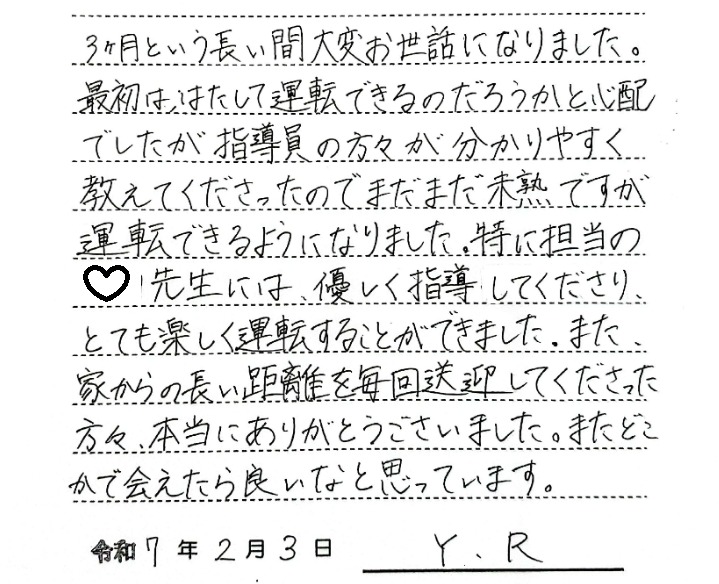 3ヶ月という長い間大変お世話になりました。
最初は、はたして運転できるのだろうかと心配
でしたが指導員の方々が分かりやすく
教えてくださったのでまだまだ未熟ですが
運転できるようになりました。特に担当の
♡先生には、優しく指導してくださり、
とても楽しく運転することができました。また、
家からの長い距離を毎回送迎してくださった
方々、本当にありがとうございました。またどこ
かで会えたら良いなと思っています。
令和7年2月3日 Y.R